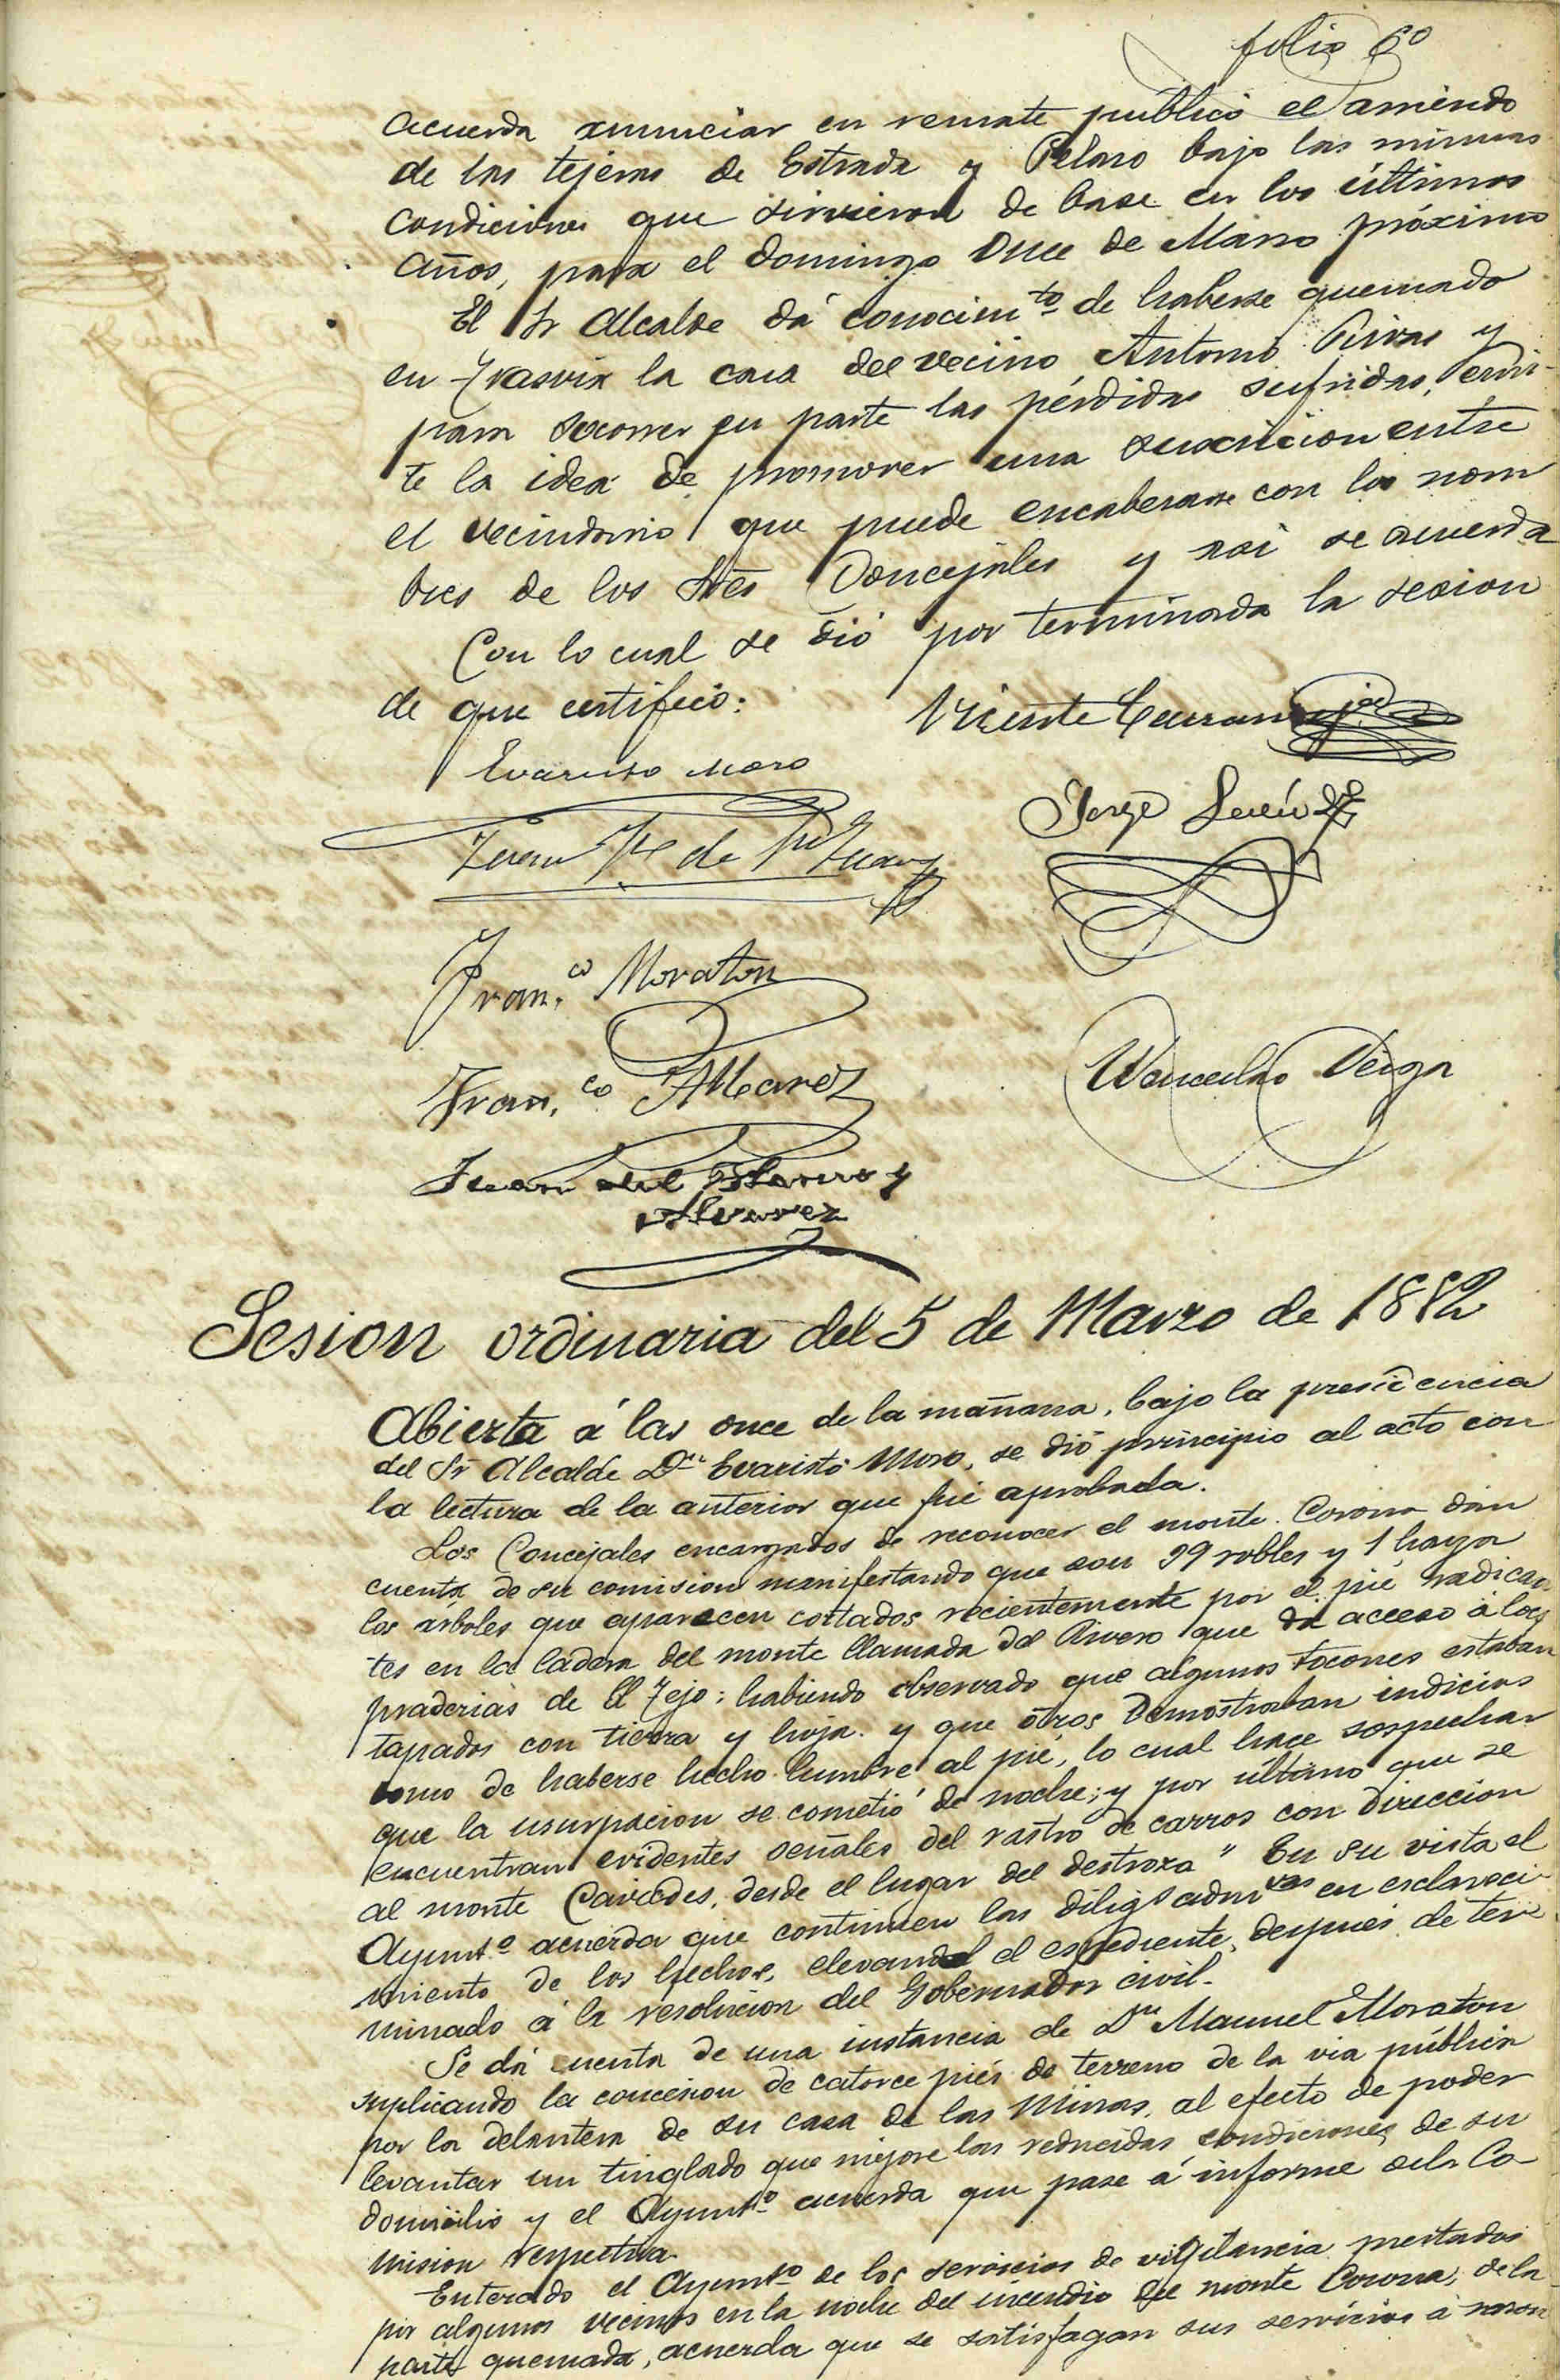 folio 6º
acuerda anunciar en remate público el arriendo
de las tejeras de Estrada y Pelaro bajo las mismas
condiciones que sirvieron de base en los últimos
años, para el domingo doce de Marzo próximo
El Sr Alcalde dá conocimto de haberse quemado
en Trasvia la casa del vecino Antonio Rivas y
para socorrer en parte las pérdidas sufridas, emi-
te la idea de promover una suscricion entre
el vecindario que puede encabezarse con los nom
bres de los Sres Concejales y asi se acuerda
Con lo cual se dió por terminada la sesion
de que certifico:
Vicente
Evaristo Moro
Jorge
Juan de
Franco Moraton
Wenceslao Veiga
Franco Alvarez
Juan del y
Alvarez
Sesion ordinaria del 5 de Marzo de 1882
Abierta á las once de la mañana, bajo la presidencia
del Sr Alcalde Dn Evaristo Moro, se dió principio al acto con
la lectura de la anterior que fué aprobada.
Los Concejales encargados de reconocer el monte Corona dán
cuenta de su comision manifestando que son 99 robles y 1 haya
los árboles que aparecen cortados recientemente por el pié radican
tes en la ladera del monte llamada del Rivero que da acceso á las
praderias de El Tejo; habiendo observado que algunos tocones estaban
tapados con tierra y hoja. y que otros demostraban indicios
como de haberse hecho lumbre al pié, lo cual hace sospechar
que la usurpacion se cometió de noche; y por último que se
encuentran evidentes señales del rastro de carros con direccion
al monte Caviedes, desde el lugar del destrozo" En su vista el
Ayuntº acuerda que continuen las diligs admvas en esclareci
miento de los hechos, elevando el espediente, despues de ter
minado á la resolucion del Gobernador civil.
Se dá cuenta de una instancia de Dn Manuel Moraton
suplicando la concesion de catorce piés de terreno de la via pública
por la delantera de su casa de las Minas, al efecto de poder
levantar un tinglado que mejore las reducidas condiciones de su
domicilio y el Ayuntº acuerda que pase á informe de la Co-
mision respectiva.
Enterado el Ayuntº de los servicios de vigilancia prestados
por algunos vecinos en la noche del incendio del monte Corona, de la
parte quemada, acuerda que se satisfagan sus servicios á razon